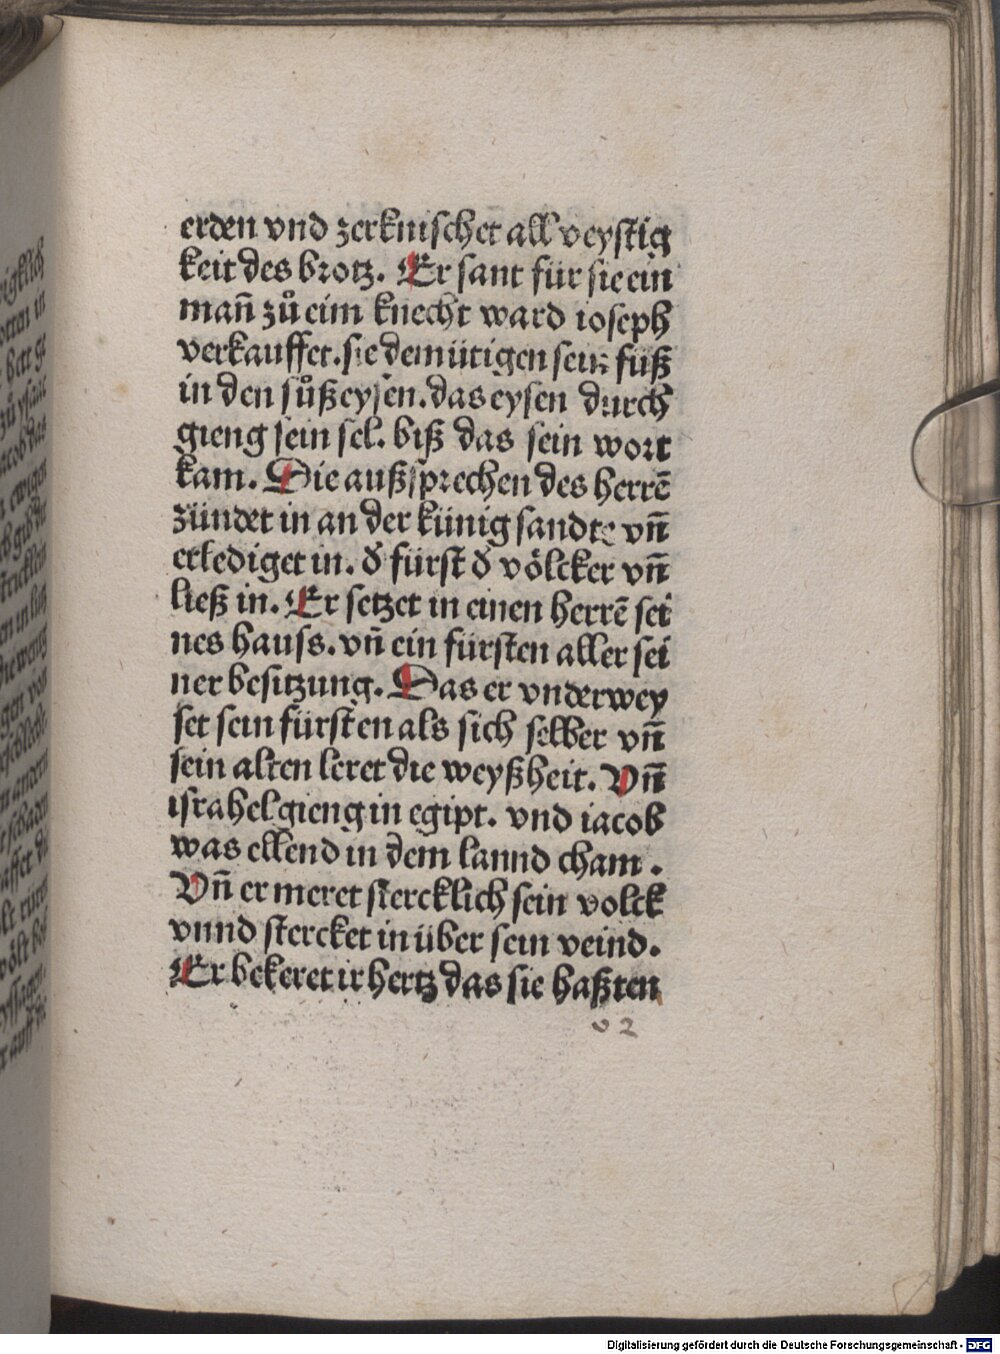 erden vnd zerknischet all veystig
keit des brotz. Er sant für sie ein
man̄ zů eim knecht ward ioseph
verkauffet. sie demütigen sein füß
in den fůßeysen. das eysen durch
gieng sein sel. biß das sein wort
kam. Die außsprechen des herrē
zündet in an der künig sandte vn̄
erlediget in. d̓ fürst d̓ völcker vn̄
ließ in. Er setzet in einen herrē sei
nes hauss. vn̄ ein fürsten aller sei
ner besitzung. Das er vnderwey
set sein fürsten als sich selber vn̄
sein alten leret die weyßheit. Vn̄
israhel gieng in egipt. vnd iacob
was ellend in dem lannd cham.
Vn̄ er meret stercklich sein volck
vnnd stercket in über sein veind.
Er bekeret ir hertz das sie haßten
v 2
Digitalisierung gefördert durch die Deutsche Forschungsgemeinschaft - DFG